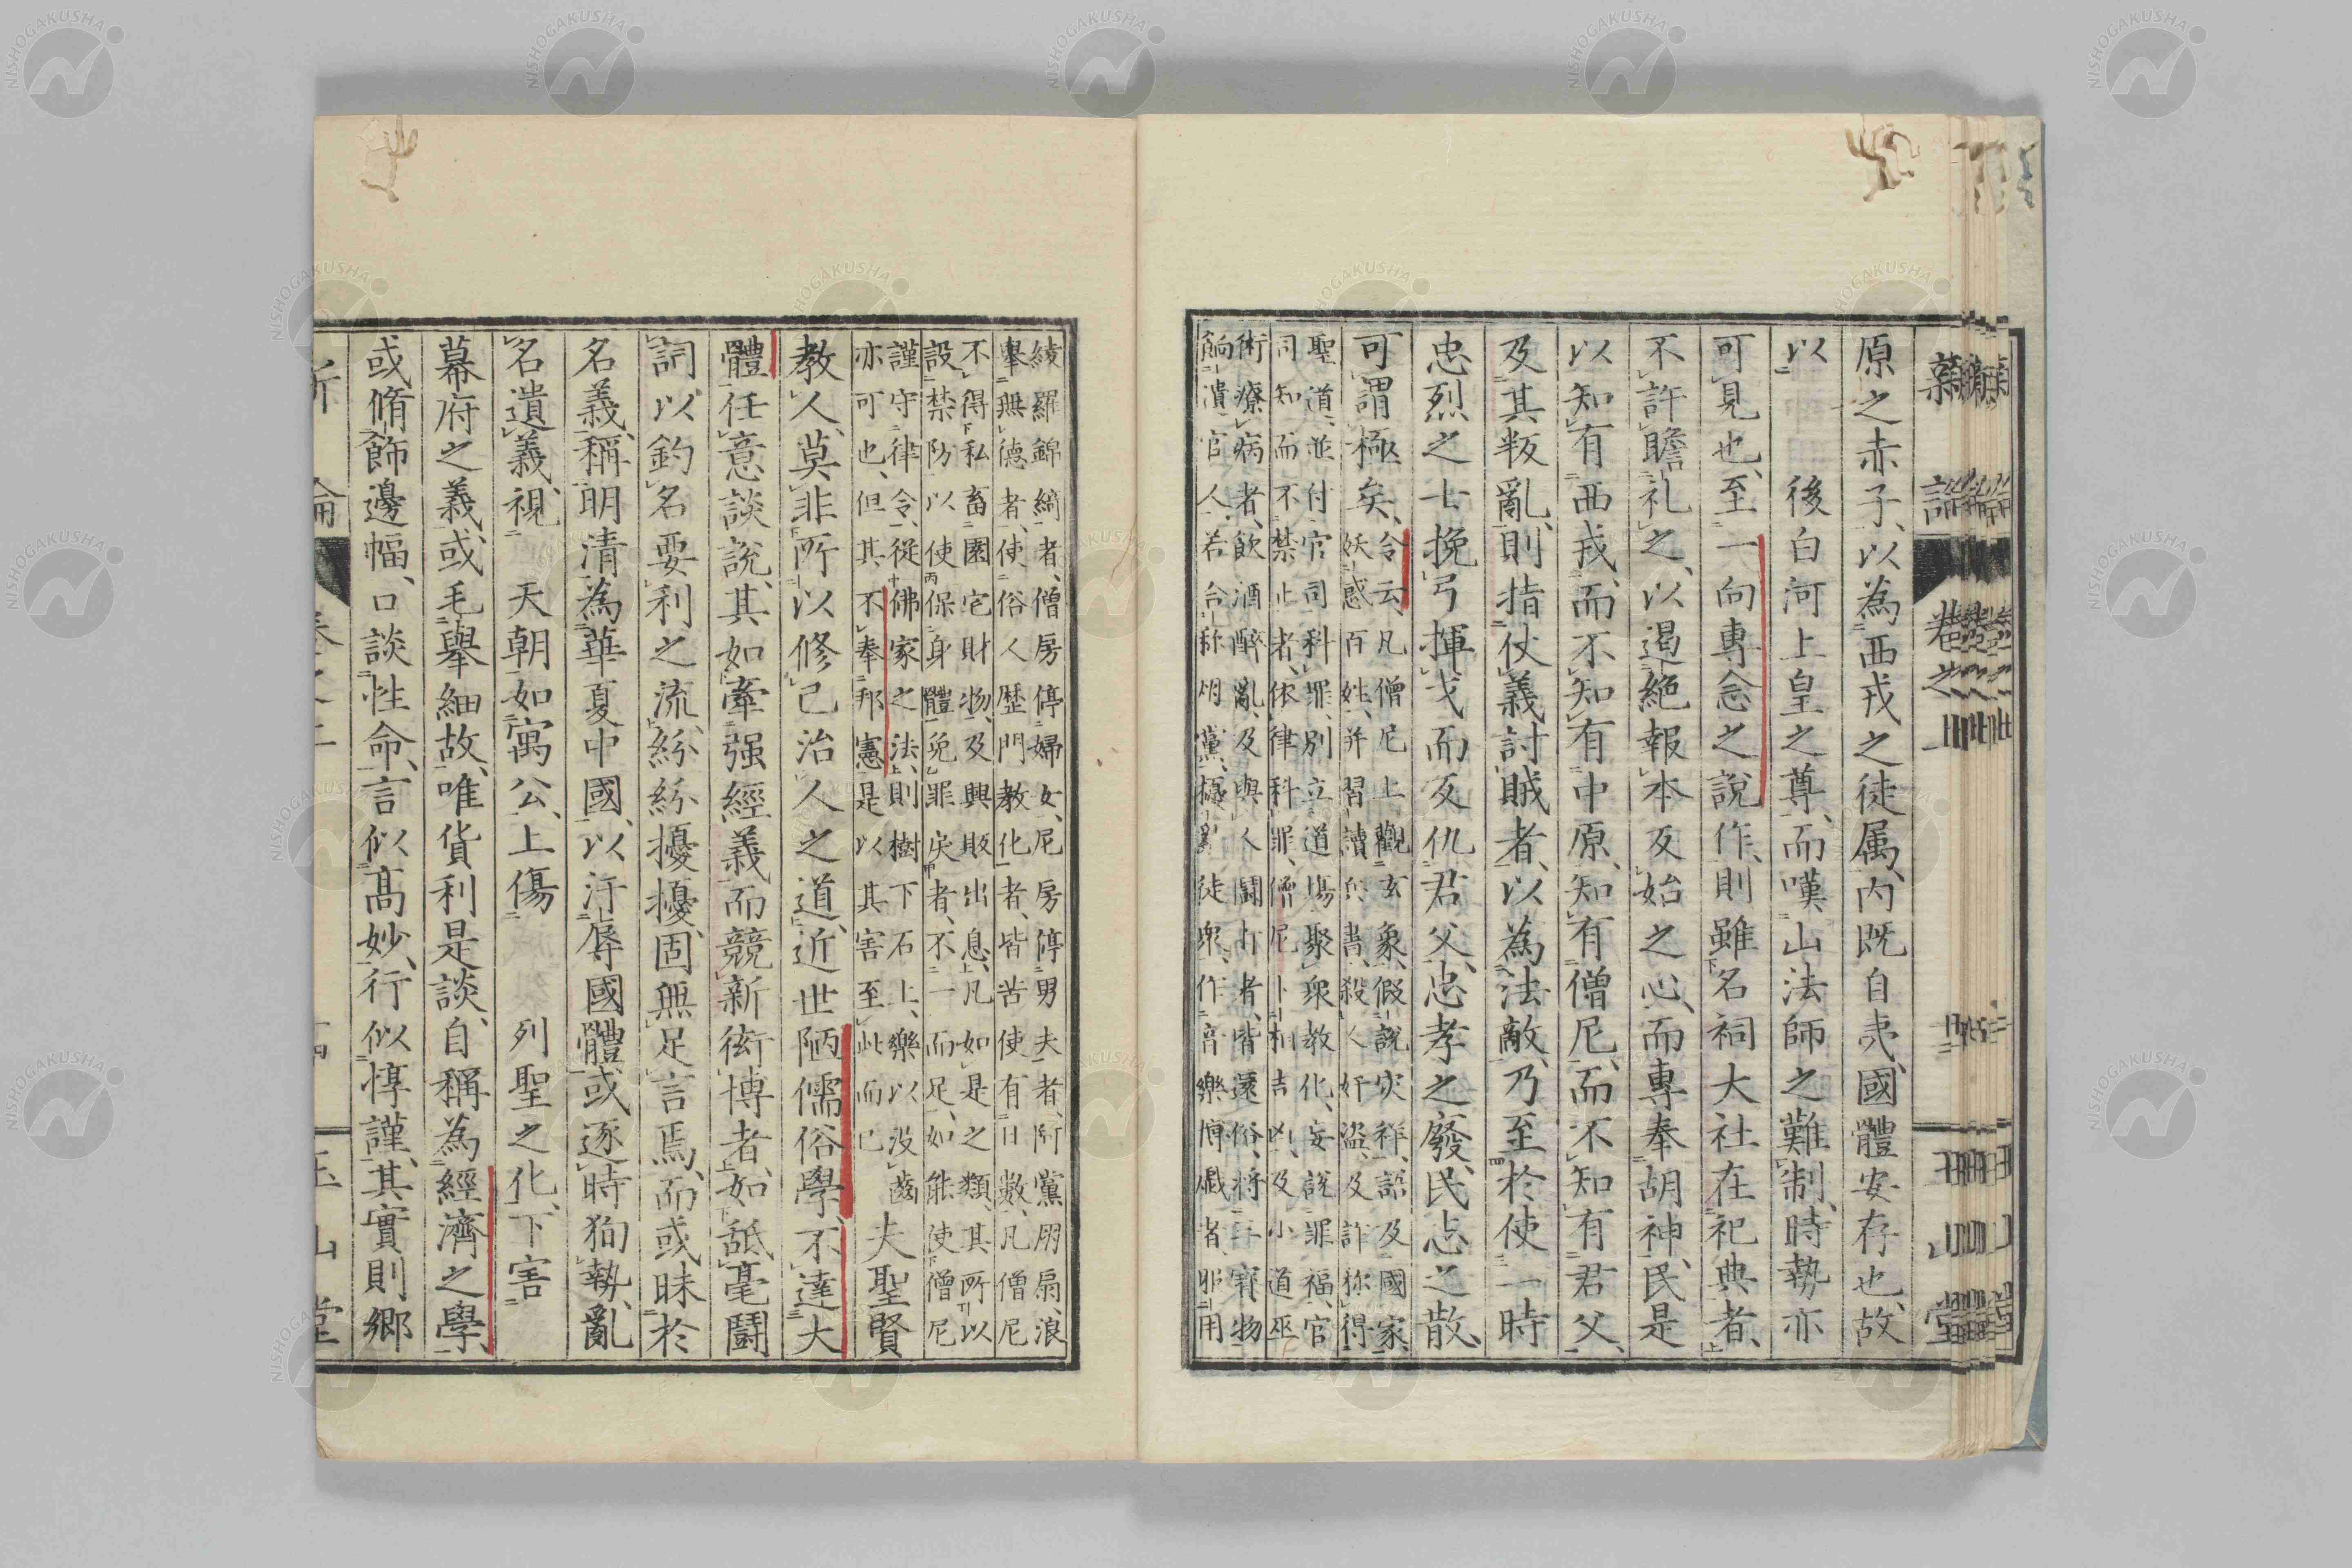 原之赤子、以為西戎之徒属、内既自夷、國體安存也、故
以　後白河上皇之尊、而嘆山法師之難制、時勢亦
可見也、至一向專念之説作、則雖名祠大社在祀典者、
不許瞻礼之、以遏絶報本反始之心、而專奉胡神、民是
以知有西戎、而不知有中原、知有僧尼、而不知有君父、
及其叛亂、則指仗義討賊者、以為法敵、乃至於使一時
忠烈之士挽弓揮戈而反仇君父、忠孝之廢、民志之散、
可謂極矣、
令云、凡僧尼上觀玄象、假説灾祥、語及國家、
妖惑百姓、并習讀兵書、殺人奸盜、及詐称得
聖道、並付官司科罪、別立道場、聚衆教化、妄説罪福、官
司知而不禁止者、依律科罪、僧尼卜相吉凶、及小道巫
術療病者、飲酒醉亂、及與人鬪打者、皆還俗、將三寶物
餉潰官人、若合称朋黨、擾亂徒衆、作音樂博戯者、邪用
綾羅錦綺者、僧房停婦女、尼房停男夫者、所黨朋扇、浪
擧無德者、使俗人歴門教化者、皆苦使有日數、凡僧尼
不得私畜園宅財物、及興販出息、凡如是之類、其所以
設禁防以使保身體免罪戻者、不一而足、如能使僧尼
謹守律令、從佛家之法、則樹下石上、樂以没齒
亦可也、但其不奉邦憲、是以其害至此而已
夫聖賢
教人、莫非所以修己治人之道、近世陋儒俗學、不達大
體、任意談説、其如牽强經義而競新衒博者、如舐毫鬪
詞以釣名要利之流、紛紛擾擾、固無足言焉、而或昧於
名義、稱明清為華夏中國、以汙辱國體、或逐時狥勢、亂
名遺義、視　天朝如寓公、上傷　列聖之化、下害
幕府之義、或毛擧細故、唯貨利是談、自稱為經濟之學、
或脩飾邊幅、口談性命、言似高妙、行似惇謹、其實則郷